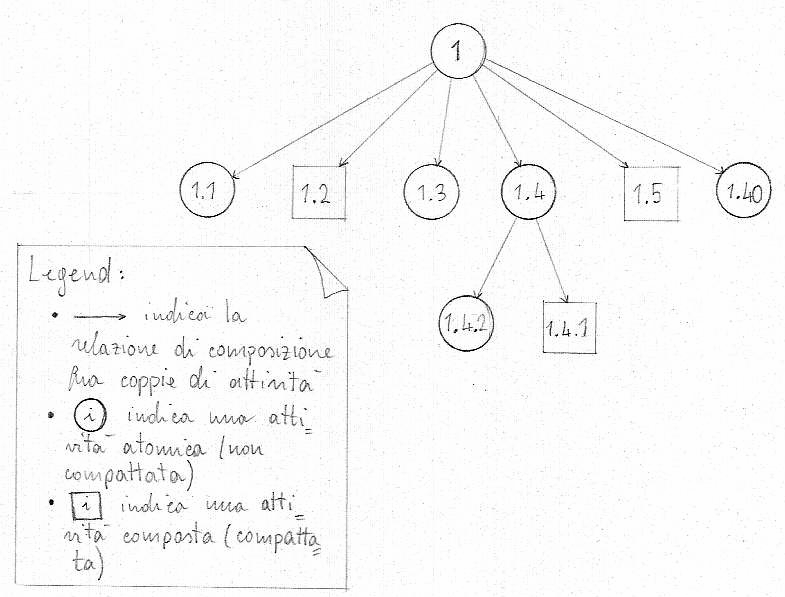 1
1.1
1.2
1.3
1.4
1.5
1.40
1.4.2
1.4.1
Legend:
• → indica la
relazione di composizione
fra coppie di attività
• i indica una atti=
vità atomica (non
compattata)
• i indica una atti=
vità composta (compatta=
ta)